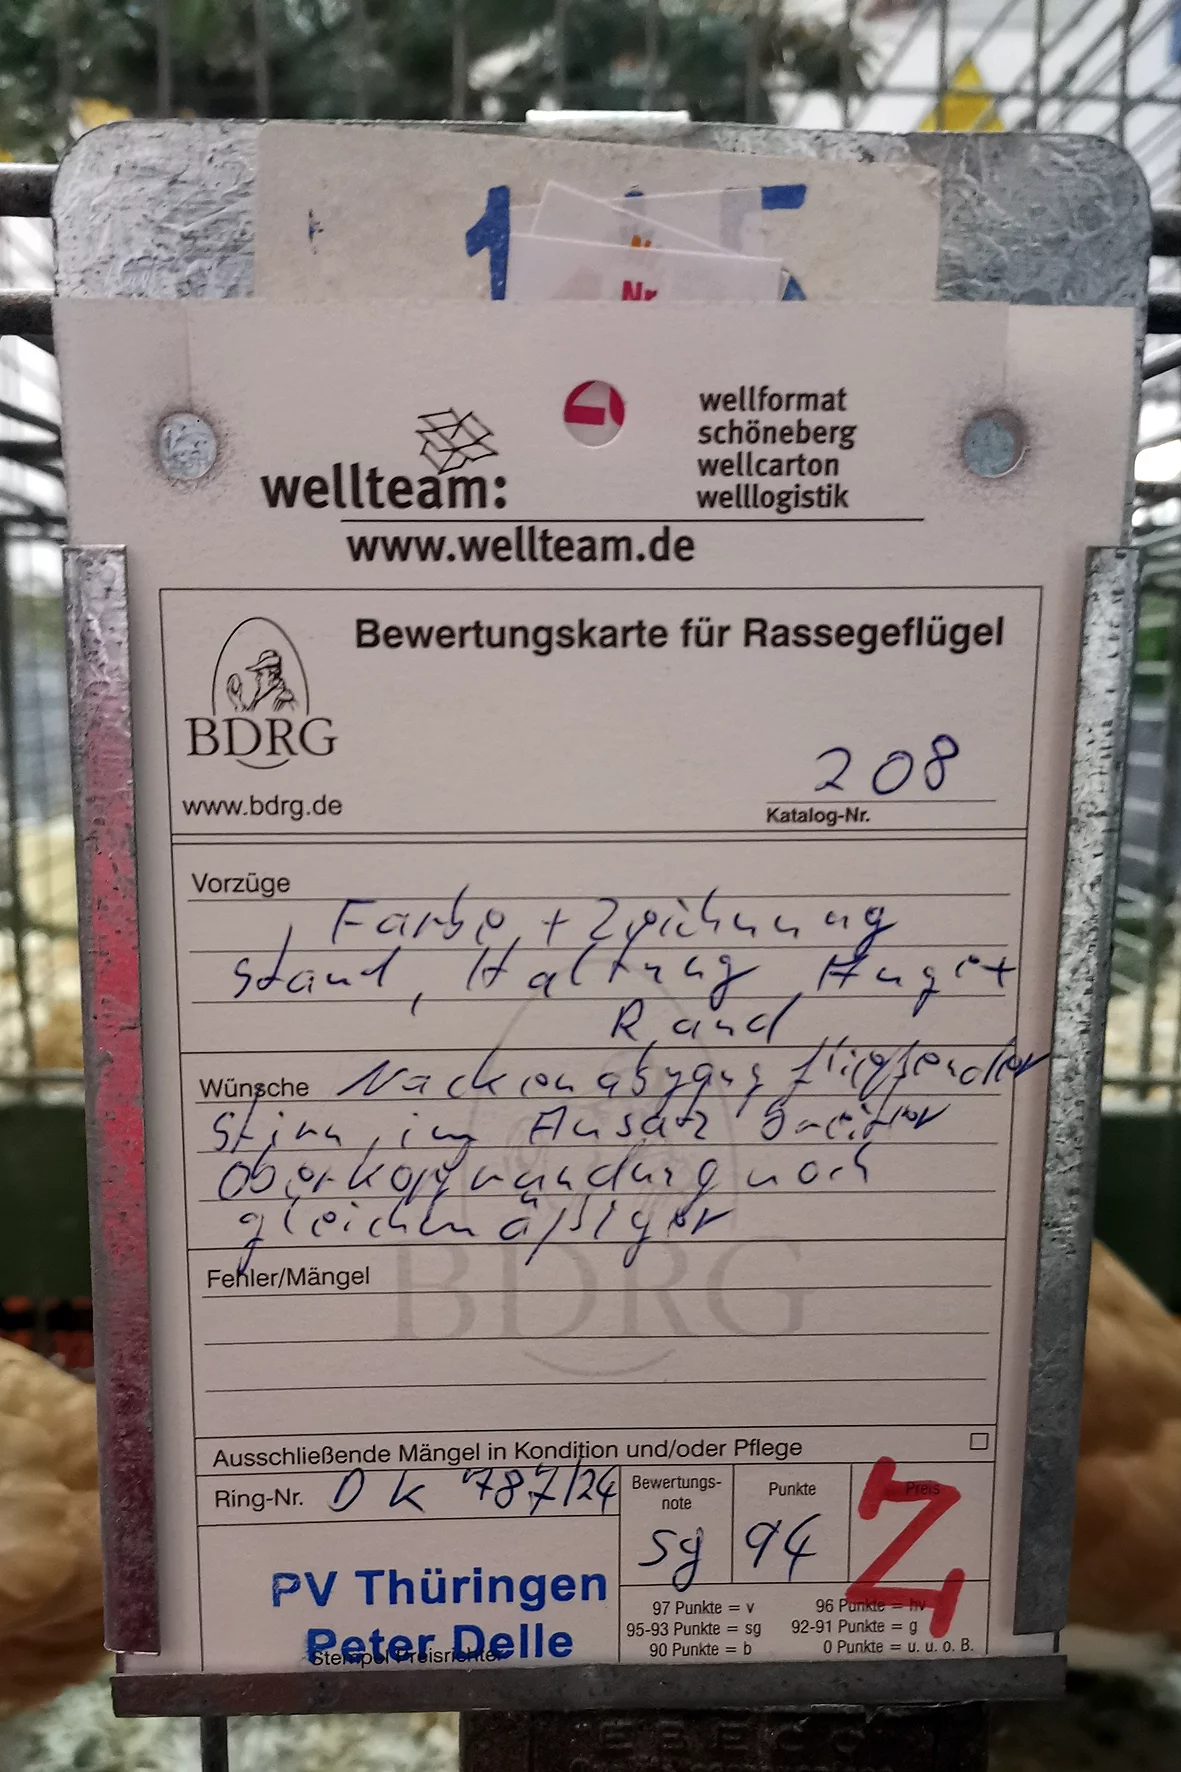 1
Nr
wellteam:
wellformat
schöneberg
wellcarton
welllogistik
www.wellteam.de
BDRG
www.bdrg.de
Bewertungskarte für Rassegeflügel
208
Katalog-Nr.
Vorzüge
Farbe + Zeichnung
Stand, Haltung, Auge +
Rand
Wünsche Nackenabgang fließender
Stirn, im Ansatz breiter
Oberkopfrundung noch
gleichmäßiger
BDRG
Fehler/Mängel
Ausschließende Mängel in Kondition und/oder Pflege
Ring-Nr. DK 787/24
Bewertungs-
note
sg
Punkte
94
Preis
Z
PV Thüringen
Peter Delle
Stempel Preisrichter
97 Punkte = v 96 Punkte = hv
95-93 Punkte = sg 92-91 Punkte = g
90 Punkte = b 0 Punkte = u. u. o. B.